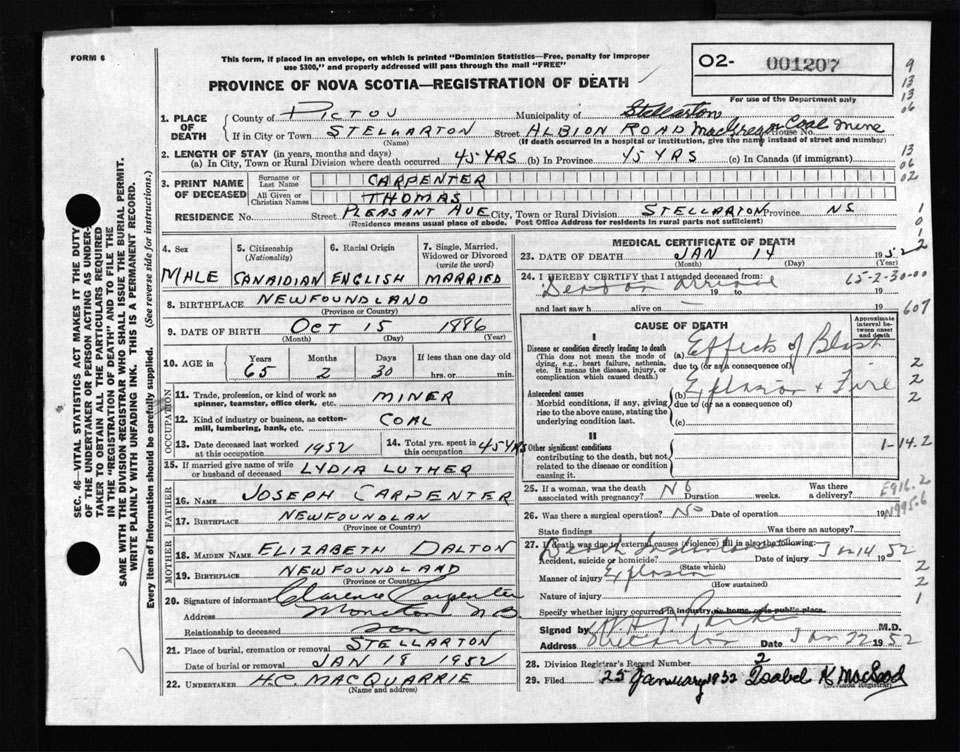 FORM 6
This form, if placed in an envelope, on which is printed "Dominion Statistics—Free, penalty for improper
use $300," and properly addressed will pass through the mail "FREE"
PROVINCE OF NOVA SCOTIA—REGISTRATION OF DEATH
02- 001207
For use of the Department only
9
13
13
06
13
06
02
1
0
1
2
1. PLACE OF DEATH
County of PICTOU Municipality of Stellarton
If in City or Town STELLARTON Street ALBION ROAD MacGregor Coal Mine House No.
(Name) (If death occurred in a hospital or institution, give the name instead of street and number)
2. LENGTH OF STAY (in years, months and days)
(a) In City, Town or Rural Division where death occurred 45 YRS (b) In Province 45 YRS (c) In Canada (if immigrant)
3. PRINT NAME OF DECEASED
Surname or Last Name CARPENTER
All Given or Christian Names THOMAS
RESIDENCE No. Street PLEASANT AVE City, Town or Rural Division STELLARTON Province NS
(Residence means usual place of abode. Post Office Address for residents in rural parts not sufficient)
4. Sex
MALE
5. Citizenship
(Nationality)
CANAIDIAN
6. Racial Origin
ENGLISH
7. Single, Married, Widowed or Divorced
(write the word)
MARRIED
8. BIRTHPLACE NEWFOUNDLAND
(Province or Country)
9. DATE OF BIRTH OCT 15 1886
(Month) (Day) (Year)
10. AGE in
Years Months Days If less than one day old
65 2 30 hrs. or min.
OCCUPATION
11. Trade, profession, or kind of work as spinner, teamster, office clerk, etc. MINER
12. Kind of industry or business, as cotton-mill, lumbering, bank, etc. COAL
13. Date deceased last worked at this occupation 1952
14. Total yrs. spent in this occupation 45 YRS
15. If married give name of wife or husband of deceased LYDIA LUTHER
FATHER
16. NAME JOSEPH CARPENTER
17. BIRTHPLACE NEWFOUNDLAN
(Province or Country)
MOTHER
18. MAIDEN NAME ELIZABETH DALTON
19. BIRTHPLACE NEWFOUNDLAND
(Province or Country)
20. Signature of informant Clarence Carpenter
Address Moncton N B
Relationship to deceased son
21. Place of burial, cremation or removal STELLARTON
Date of burial or removal JAN 18 1952
22. UNDERTAKER H.C. MACQUARRIE
(Name and address)
MEDICAL CERTIFICATE OF DEATH
23. DATE OF DEATH JAN 14 1952
(Month) (Day) (Year)
24. I HEREBY CERTIFY that I attended deceased from: 65-2-30-00
Dead on arrival 19 to 19
and last saw h alive on — 19
607
CAUSE OF DEATH
Approximate interval between onset and death
I
Disease or condition directly leading to death
(This does not mean the mode of dying, e.g., heart failure, asthenia, etc. It means the disease, injury, or complication which caused death.)
(a) Effects of Blast
due to (or as a consequence of)
Antecedent causes
Morbid conditions, if any, giving rise to the above cause, stating the underlying condition last.
(b) Explosion & Fire
due to (or as a consequence of)
(c)
2
2
2
II
Other significant conditions
contributing to the death, but not related to the disease or condition causing it.
1-14.2
25. If a woman, was the death associated with pregnancy? No Duration weeks. Was there a delivery?
E916.2
26. Was there a surgical operation? No Date of operation 19
N995.6
State findings Was there an autopsy?
27. If death was due to external causes (violence) fill in also the following:
Accident, suicide or homicide? Date of injury Jan 14, 52
(State which)
Manner of injury Explosion
(How sustained)
Nature of injury
Specify whether injury occurred in industry, in home, or in public place.
2
2
1
Signed by M.D.
Address Stellarton Date Jan 22 1952
28. Division Registrar's Record Number 2
29. Filed 25 January 1952 Isabel K MacLeod
(Division Registrar)
SEC. 46—VITAL STATISTICS ACT MAKES IT THE DUTY
OF THE UNDERTAKER OR PERSON ACTING AS UNDER-
TAKER TO OBTAIN ALL THE PARTICULARS REQUIRED
IN THE "REGISTRATION OF DEATH" AND TO FILE THE
SAME WITH THE DIVISION REGISTRAR WHO SHALL ISSUE THE BURIAL PERMIT.
WRITE PLAINLY WITH UNFADING INK. THIS IS A PERMANENT RECORD.
Every item of Information should be carefully supplied. (See reverse side for instructions.)